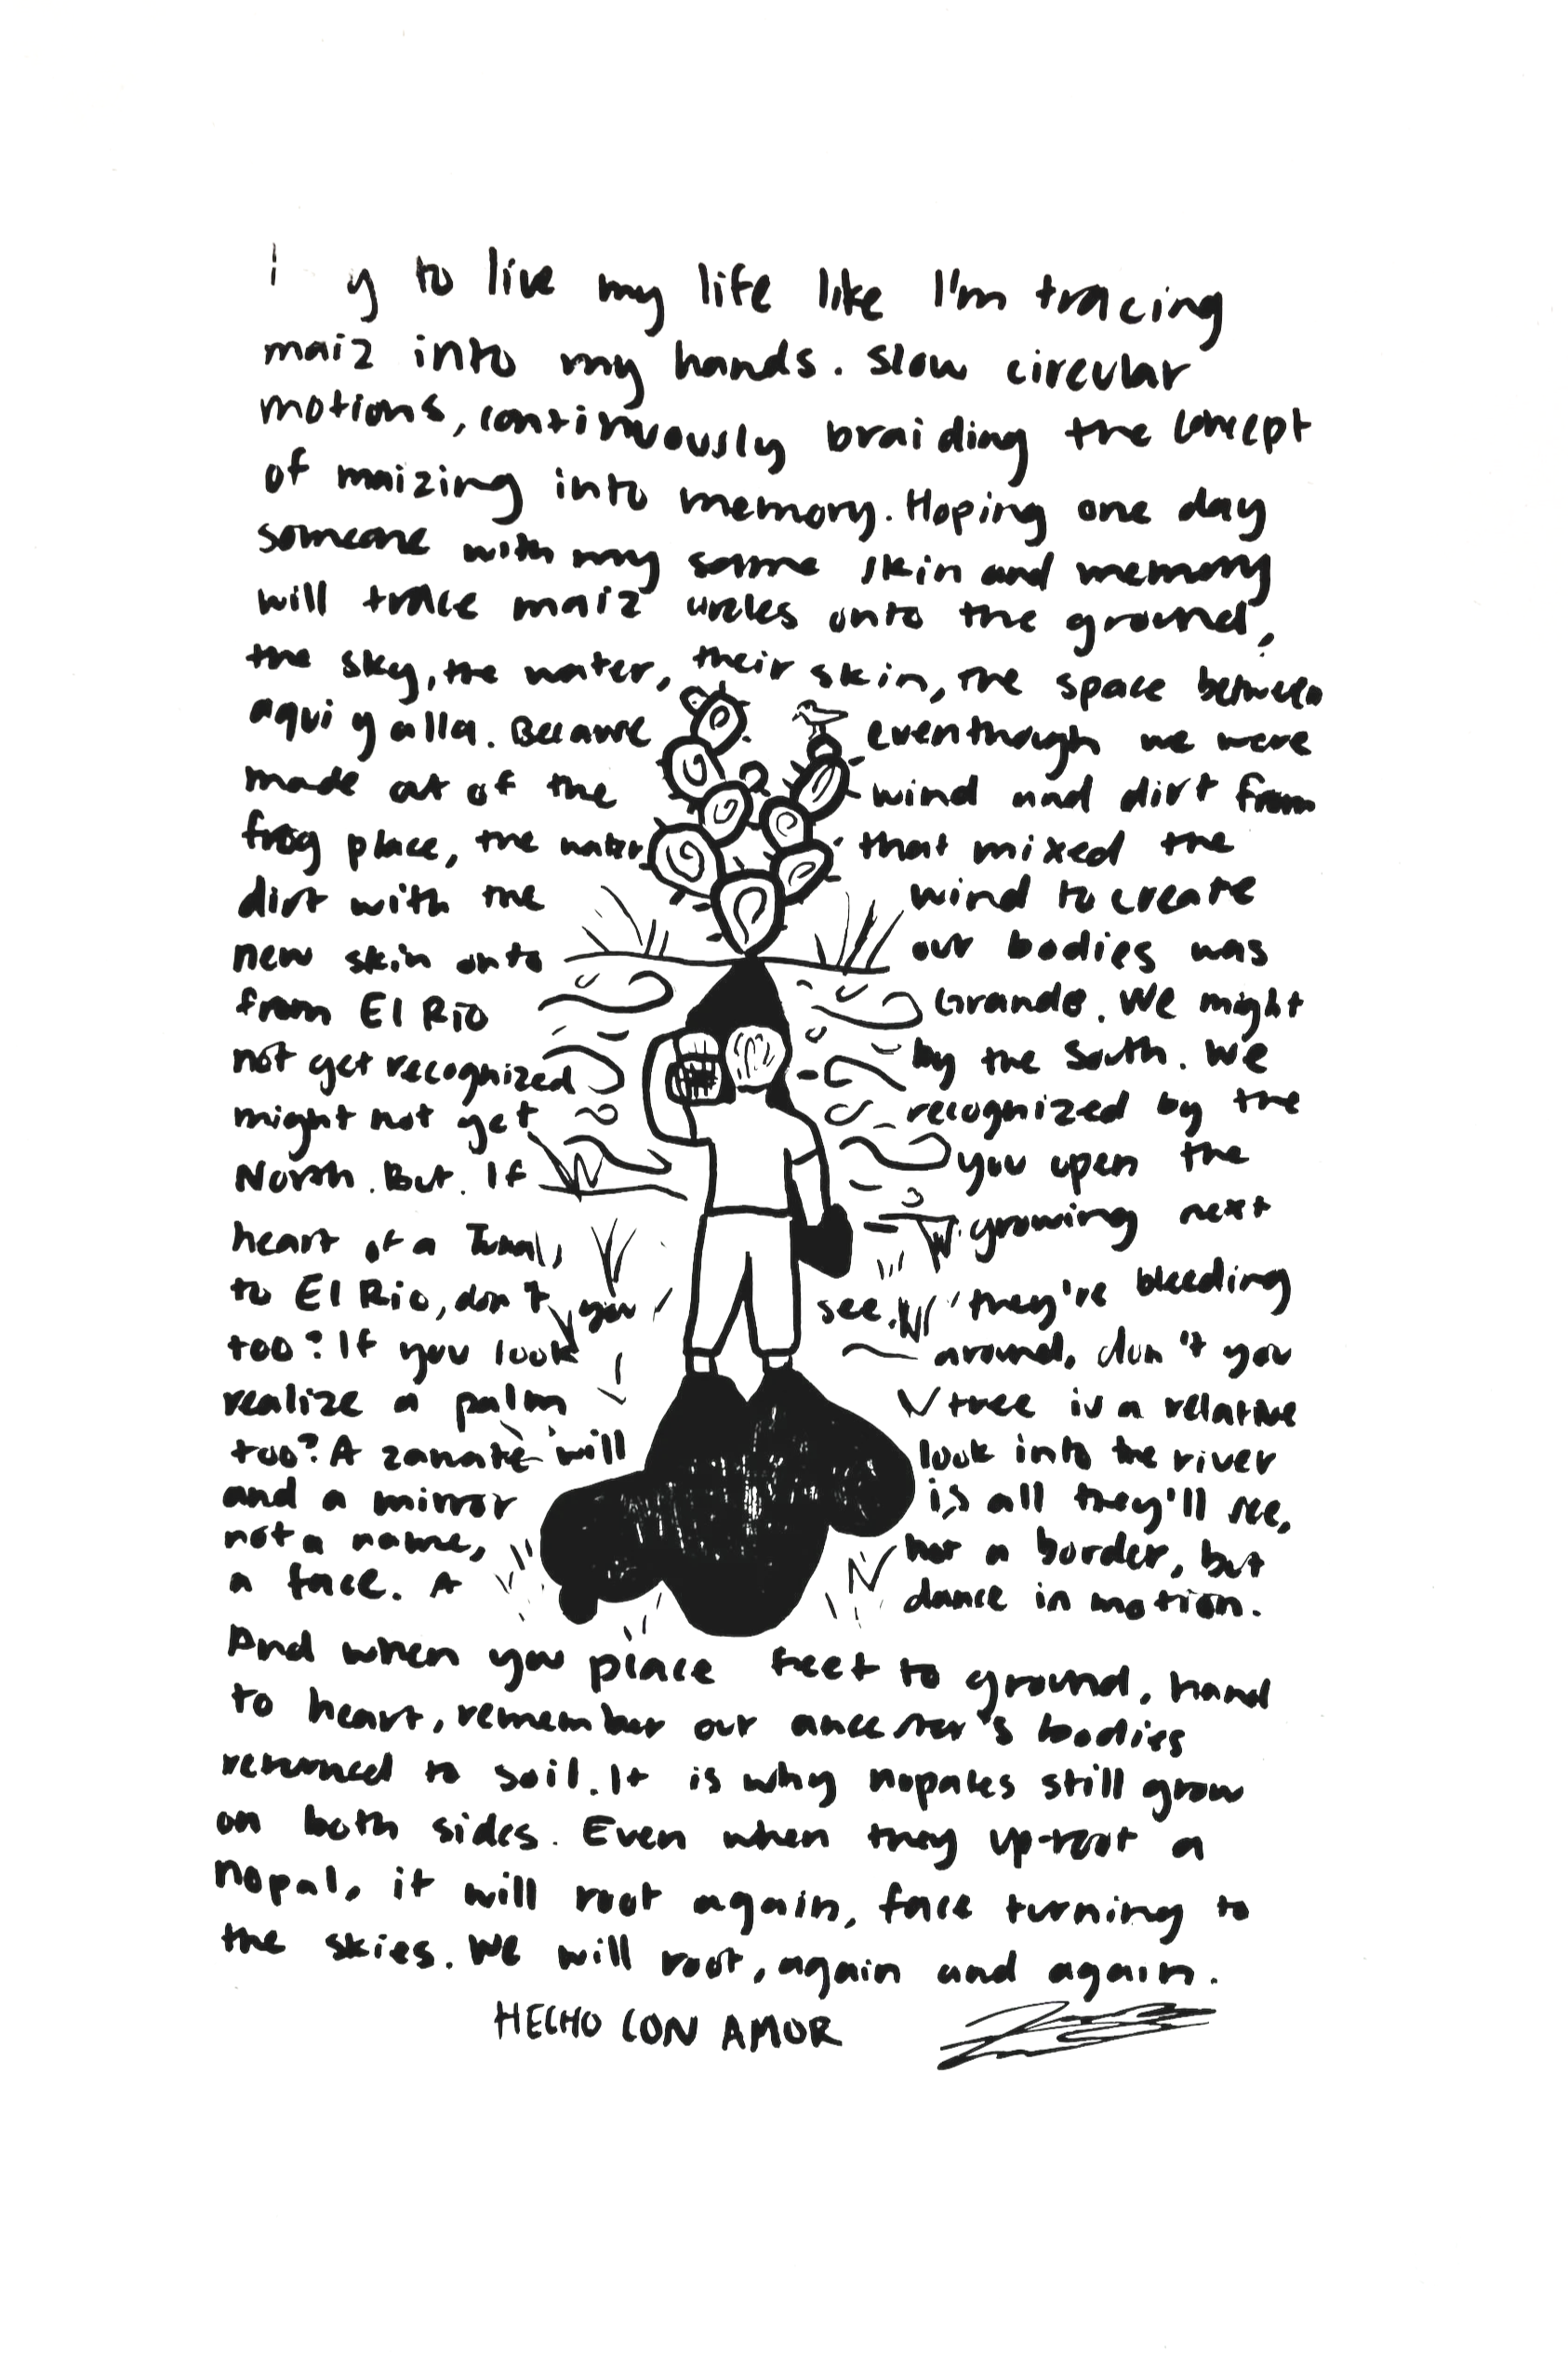 I y to live my life like I'm tracing
maiz into my hands. Slow circular
motions, continuously braiding the concept
of maizing into memory. Hoping one day
someone with my same skin and memory
will trace maiz circles onto the ground,
the sky, the water, their skin, the space between
aqui y alla. Because eventhough we were
made out of the wind and dirt from
frog place, the water that mixed the
dirt with the wind to create
new skin onto our bodies was
from El Rio Grande. We might
not get recognized by the South. We
might not get recognized by the
North. But. If you open the
heart of a Tuna, growing next
to El Rio, don't you see they're bleeding
too? If you look around, don't you
realize a palm tree is a relative
too? A zanate will look into the river
and a mirror is all they'll see,
not a name, not a border, but
a face. A dance in motion.
And when you place feet to ground, hand
to heart, remember our ancestor's bodies
returned to soil. It is why nopales still grow
on both sides. Even when they up-root a
nopal, it will root again, face turning to
the skies. We will root, again and again.
HECHO CON AMOR